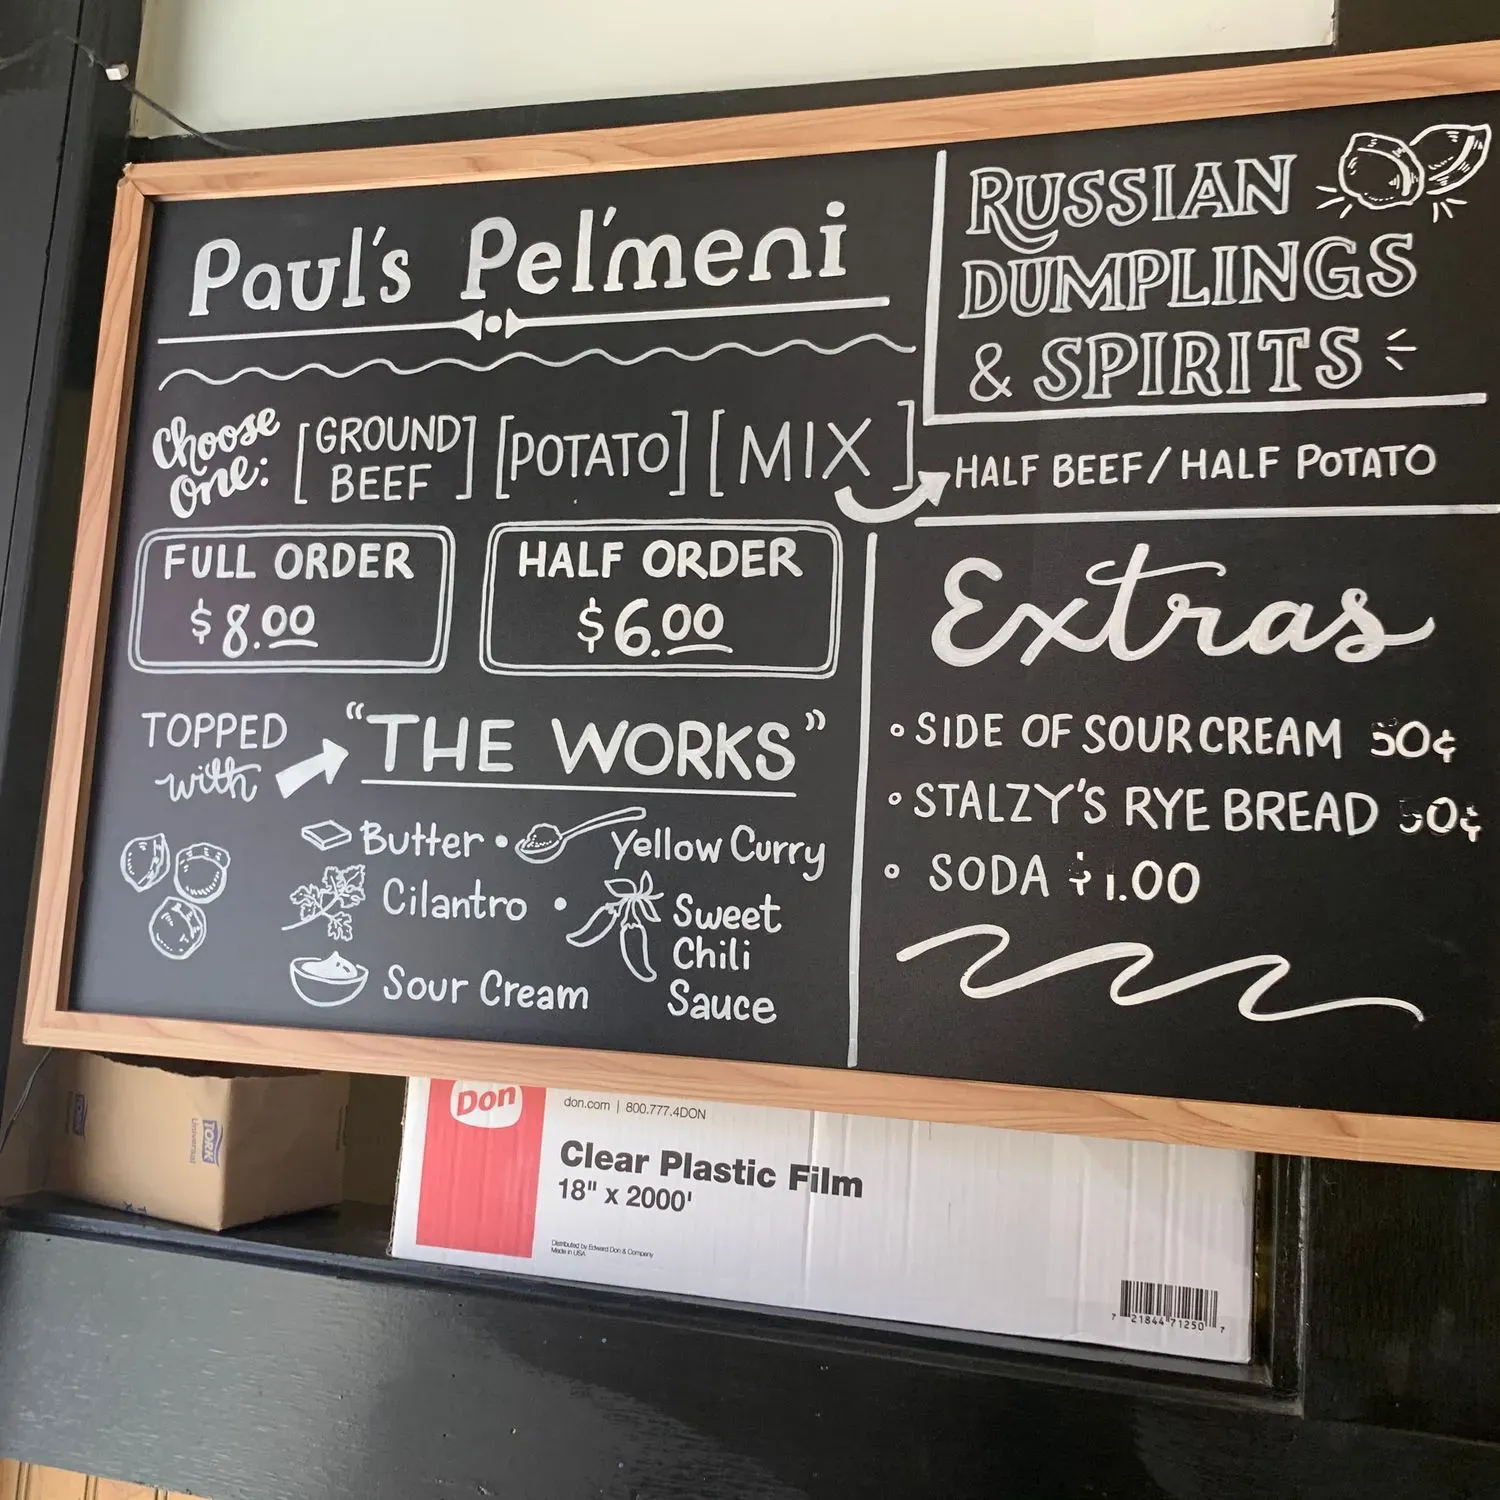 Paul's Pel'meni
RUSSIAN
DUMPLINGS
& SPIRITS
Choose
one:
[GROUND
BEEF]
[POTATO]
[MIX]
HALF BEEF/HALF POTATO
FULL ORDER
$8.00
HALF ORDER
$6.00
TOPPED
with
"THE WORKS"
Butter • Yellow Curry
Cilantro • Sweet
Chili
Sauce
Sour Cream
Extras
• SIDE OF SOUR CREAM 50¢
• STALZY'S RYE BREAD 50¢
• SODA $1.00
TORK
Universal
Don
don.com | 800.777.4DON
Clear Plastic Film
18" x 2000'
Distributed by Edward Don & Company
Made in USA
7 21844 71250 7